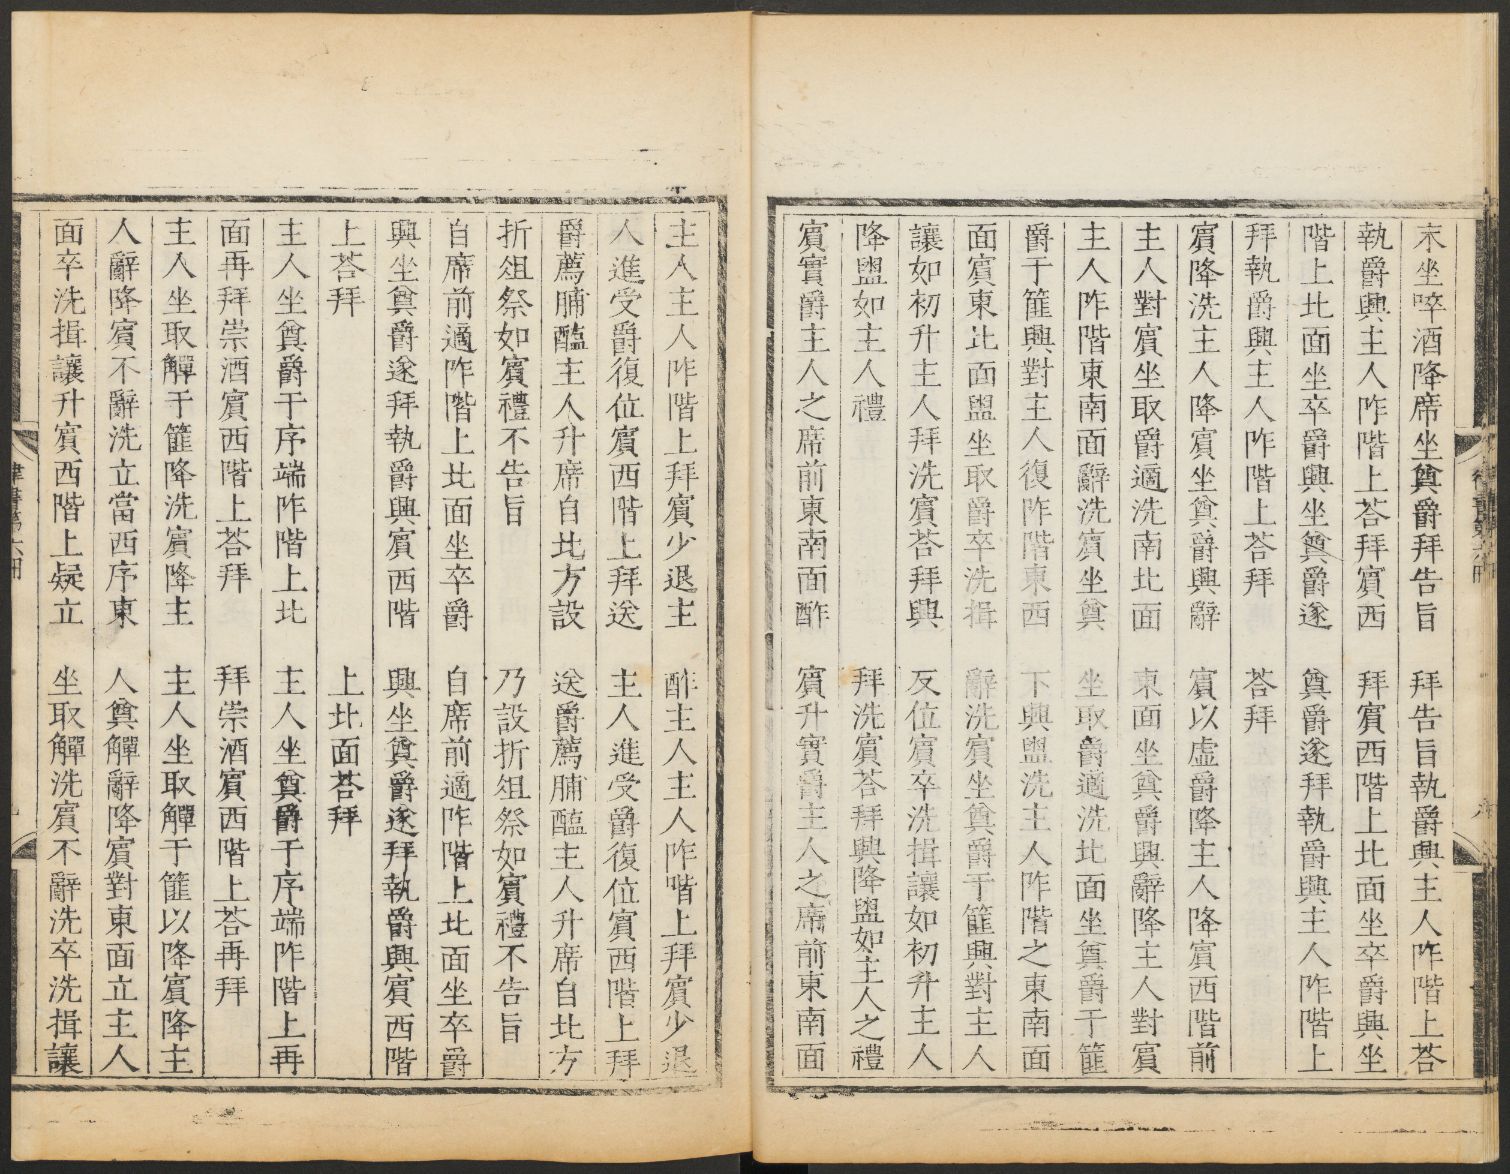 末坐啐酒降席坐奠爵拜告旨　拜告旨執爵興主人阼階上荅
執爵興主人阼階上荅拜賓西　拜賓西階上北面坐卒爵興坐
階上北面坐卒爵興坐奠爵遂　奠爵遂拜執爵興主人阼階上
拜執爵興主人阼階上荅拜　荅拜
賓降洗主人降賓坐奠爵興辭　賓以虛爵降主人降賓西階前
主人對賓坐取爵適洗南北面　東面坐奠爵興辭降主人對賓
主人阼階東南面辭洗賓坐奠　坐取爵適洗北面坐奠爵于篚
爵于篚興對主人復阼階東西　下興盥洗主人阼階之東南面
面賓東北面盥坐取爵卒洗揖　辭洗賓坐奠爵于篚興對主人
讓如初升主人拜洗賓荅拜興　反位賓卒洗揖讓如初升主人
降盥如主人禮　拜洗賓荅拜興降盥如主人之禮
賓實爵主人之席前東南面酢　賓升實爵主人之席前東南面
主人主人阼階上拜賓少退主　酢主人主人阼階上拜賓少退
人進受爵復位賓西階上拜送　主人進受爵復位賓西階上拜
爵薦脯醢主人升席自北方設　送爵薦脯醢主人升席自北方
折俎祭如賓禮不告旨　乃設折俎祭如賓禮不告旨
自席前適阼階上北面坐卒爵　自席前適阼階上北面坐卒爵
興坐奠爵遂拜執爵興賓西階　興坐奠爵遂拜執爵興賓西階
上荅拜　上北面荅拜
主人坐奠爵于序端阼階上北　主人坐奠爵于序端阼階上再
面再拜崇酒賓西階上荅拜　拜崇酒賓西階上荅再拜
主人坐取觶于篚降洗賓降主　主人坐取觶于篚以降賓降主
人辭降賓不辭洗立當西序東　人奠觶辭降賓對東面立主人
面卒洗揖讓升賓西階上疑立　坐取觶洗賓不辭洗卒洗揖讓